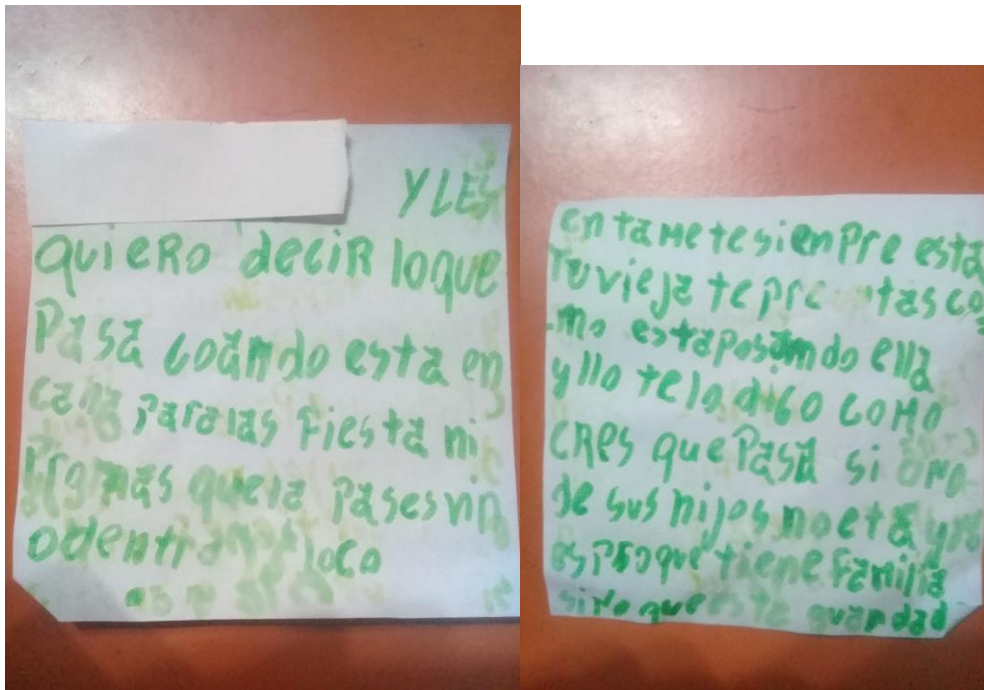 Y LES
QUIERO decir loque
Pasa coando esta en
cana Paralas Fiesta ni
que la Pases
loco
entamete sienPre esta
Tu vieja te tas co
mo estaposamdo ella
y llo telo digo como
CRes que Pasa si ono
de sus nijos no eta y no
es proque tiene Familia
sino que esta guardad